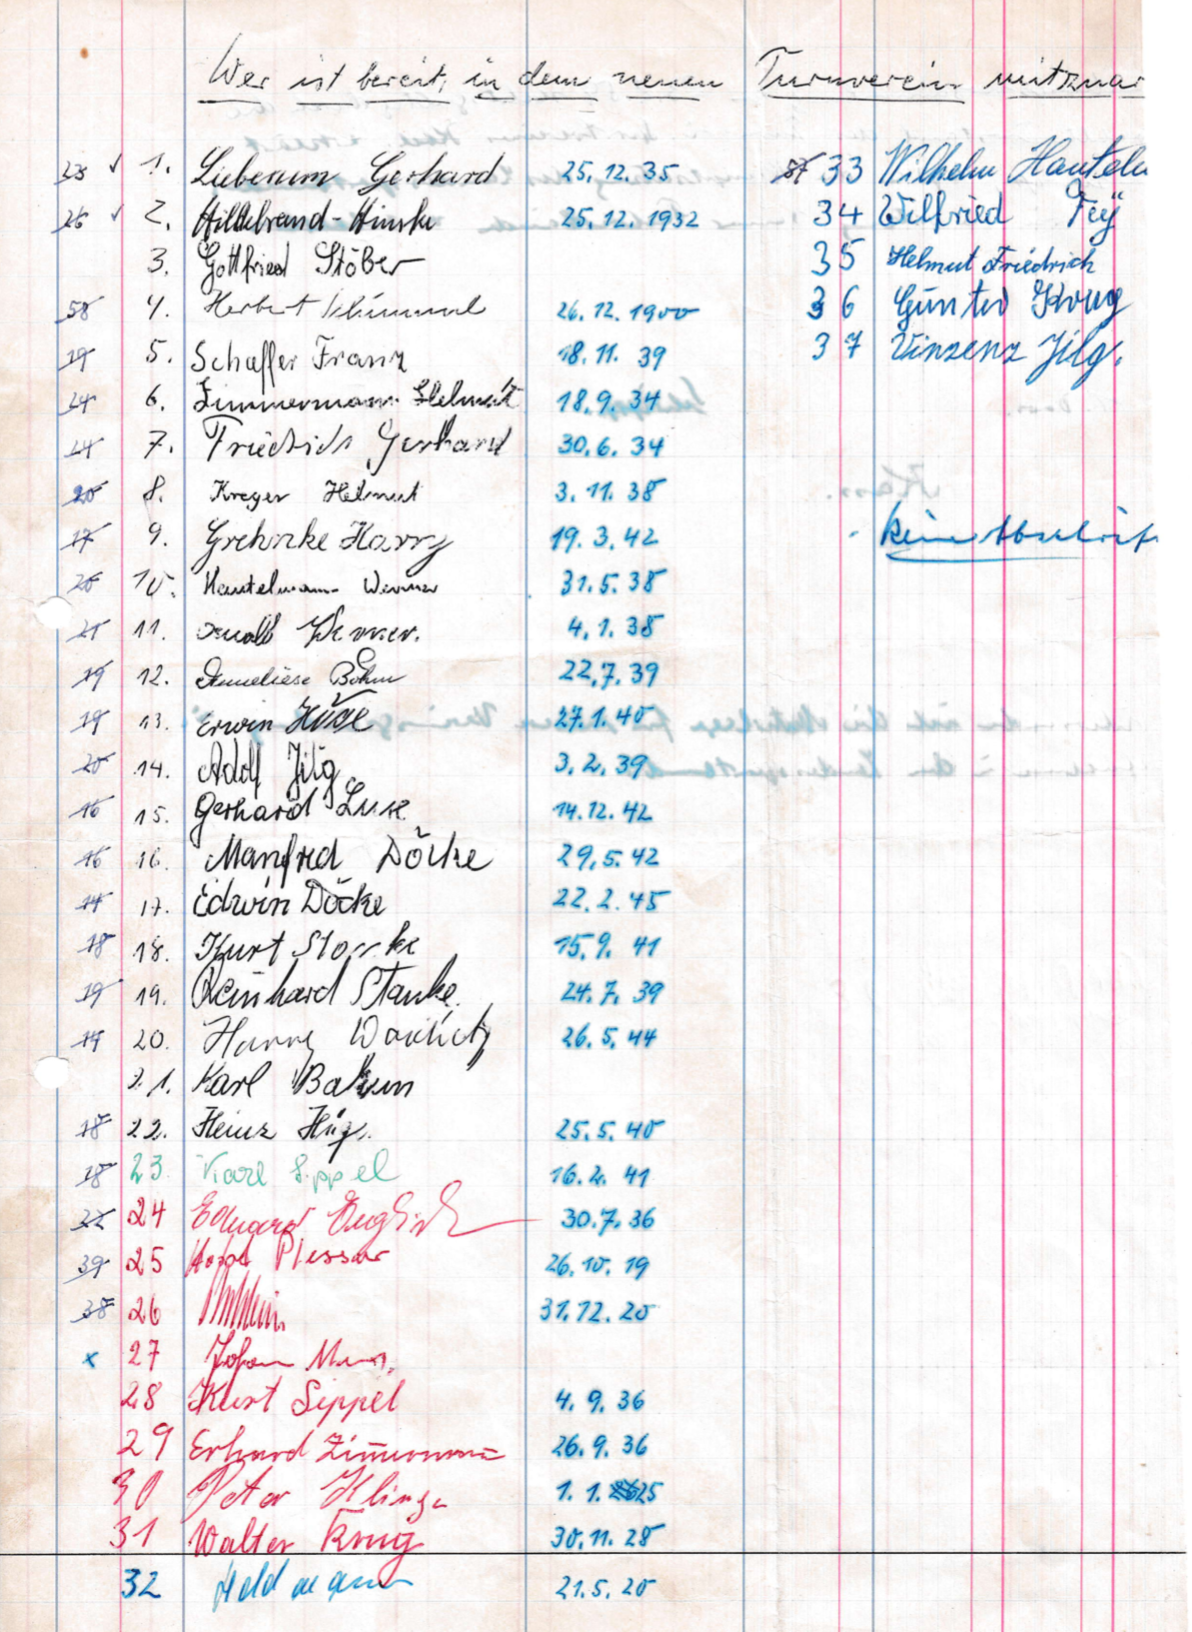 Wer ist bereit, in dem neuen Turnverein mitzuar
23 ✓ 1. Lieberum Gerhard 25.12.35
26 ✓ 2. Hildebrand-Hinske 25.12.1932
3. Gottfried Stöber
58 4. Herbert 26.12.1900
19 5. Schaffer Franz 18.11.39
24 6. Zimmermann Helmut 18.9.34
24 7. Friedrich Gerhard 30.6.34
20 8. Kreger Helmut 3.11.38
17 9. Grehnke Harry 19.3.42
20 10. Hautelmann Werner 31.5.38
21 11. Werner. 4.1.38
19 12. Anneliese Böhm 22.7.39
19 13. Erwin Höse 27.1.40
20 14. Adolf Jilg 3.2.39
16 15. Gerhard Luse 14.12.42
16 16. Manfred Döcke 29.5.42
14 17. Edwin Döcke 22.2.45
18 18. Kurt 15.9.41
19 19. Reinhard Stanke. 24.7.39
14 20. Harry 26.5.44
21. Karl
18 22. Heinz 25.5.40
18 23. Karl Sippel 16.2.41
22 24 Eduard Englisch 30.7.36
39 25 Plessar 26.10.19
38 26 31.12.20
x 27 Johann
28 Kurt Sippel 4.9.36
29 Erhard Zimmermann 26.9.36
30 Peter Klinge 1.1. 25
31 Walter Krug 30.11.28
32 Heldmann 21.5.20
33 Wilhelm Hauteln
34 Wilfried Fey
35 Helmut Friedrich
36 Günter Krug
37 Vinzenz Jilg.
keine Abschrift